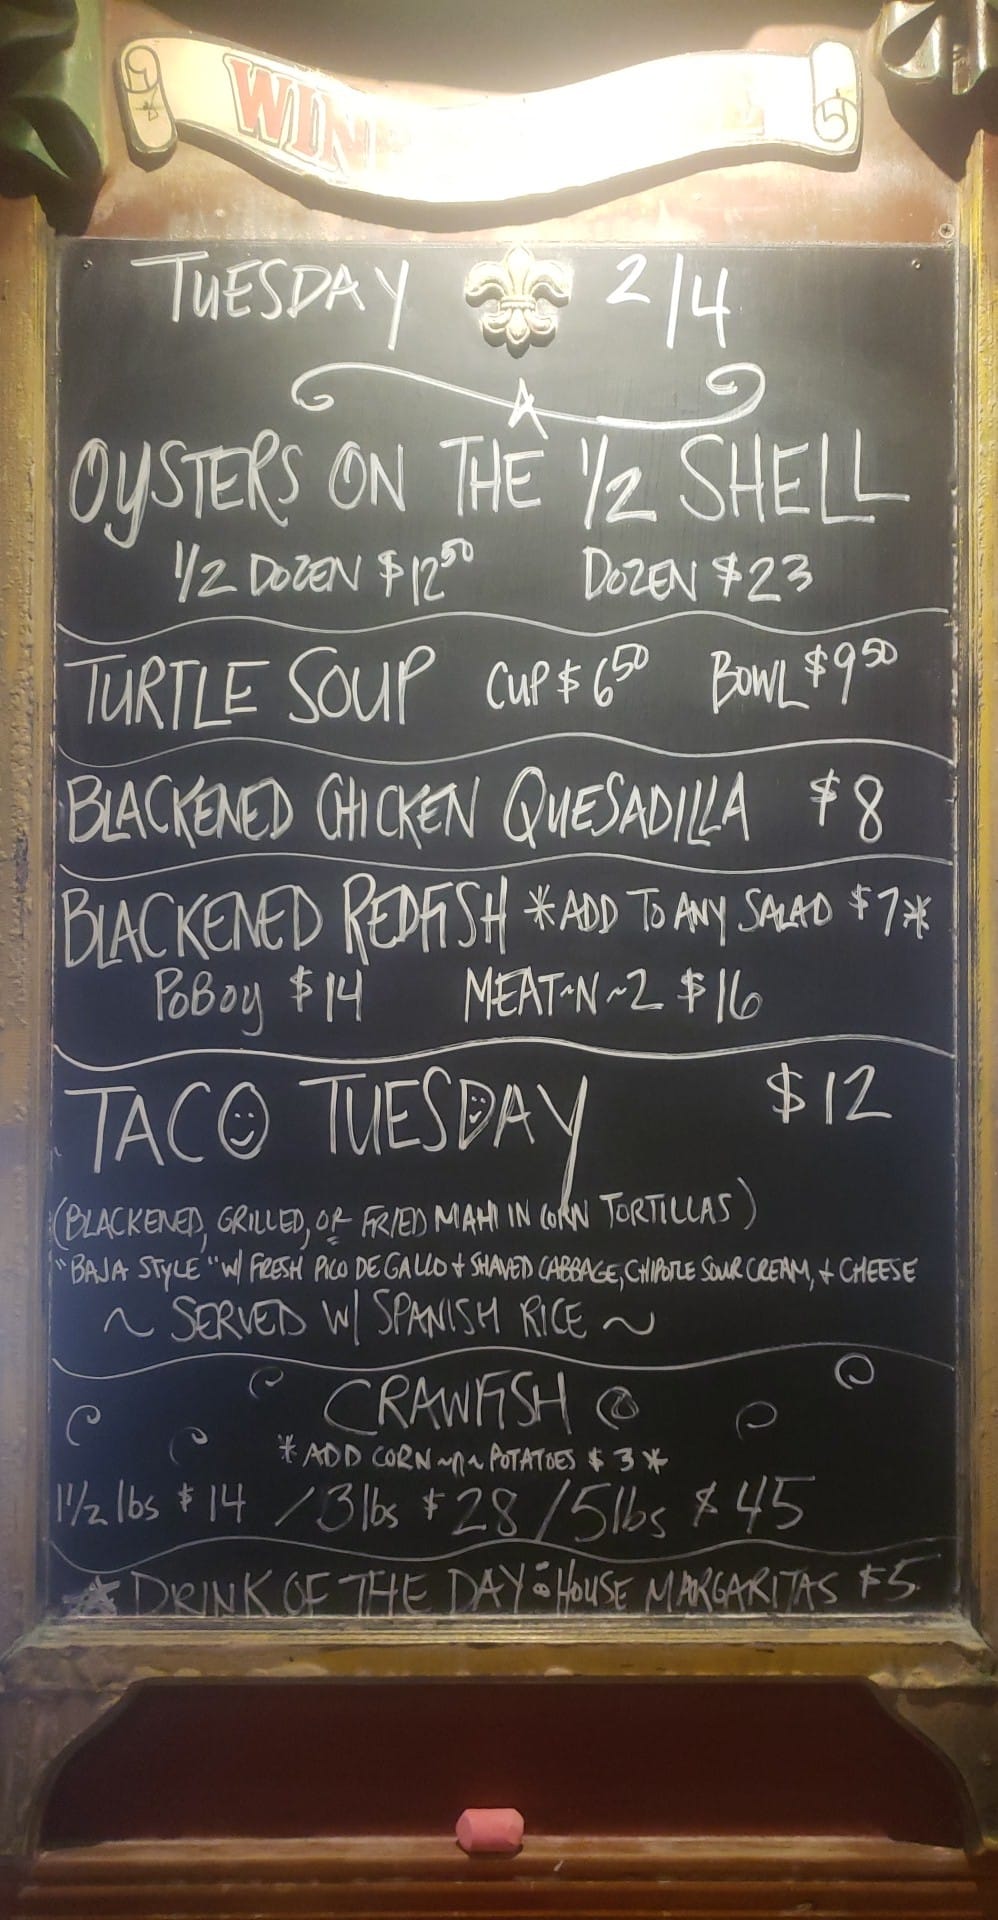 WIN
TUESDAY 2/4
OYSTERS ON THE 1/2 SHELL
1/2 DOZEN $12.50 DOZEN $23
TURTLE SOUP CUP $6.50 BOWL $9.50
BLACKENED CHICKEN QUESADILLA $8
BLACKENED REDFISH *ADD TO ANY SALAD $7*
POBOY $14 MEAT~N~2 $16
TACO TUESDAY $12
(BLACKENED, GRILLED, OR FRIED MAHI IN CORN TORTILLAS)
"BAJA STYLE" W/ FRESH PICO DE GALLO + SHAVED CABBAGE, CHIPOTLE SOUR CREAM, + CHEESE
~ SERVED W/ SPANISH RICE ~
CRAWFISH
*ADD CORN ~N~ POTATOES $3*
1 1/2 lbs $14 / 3 lbs $28 / 5 lbs $45
DRINK OF THE DAY: HOUSE MARGARITAS $5